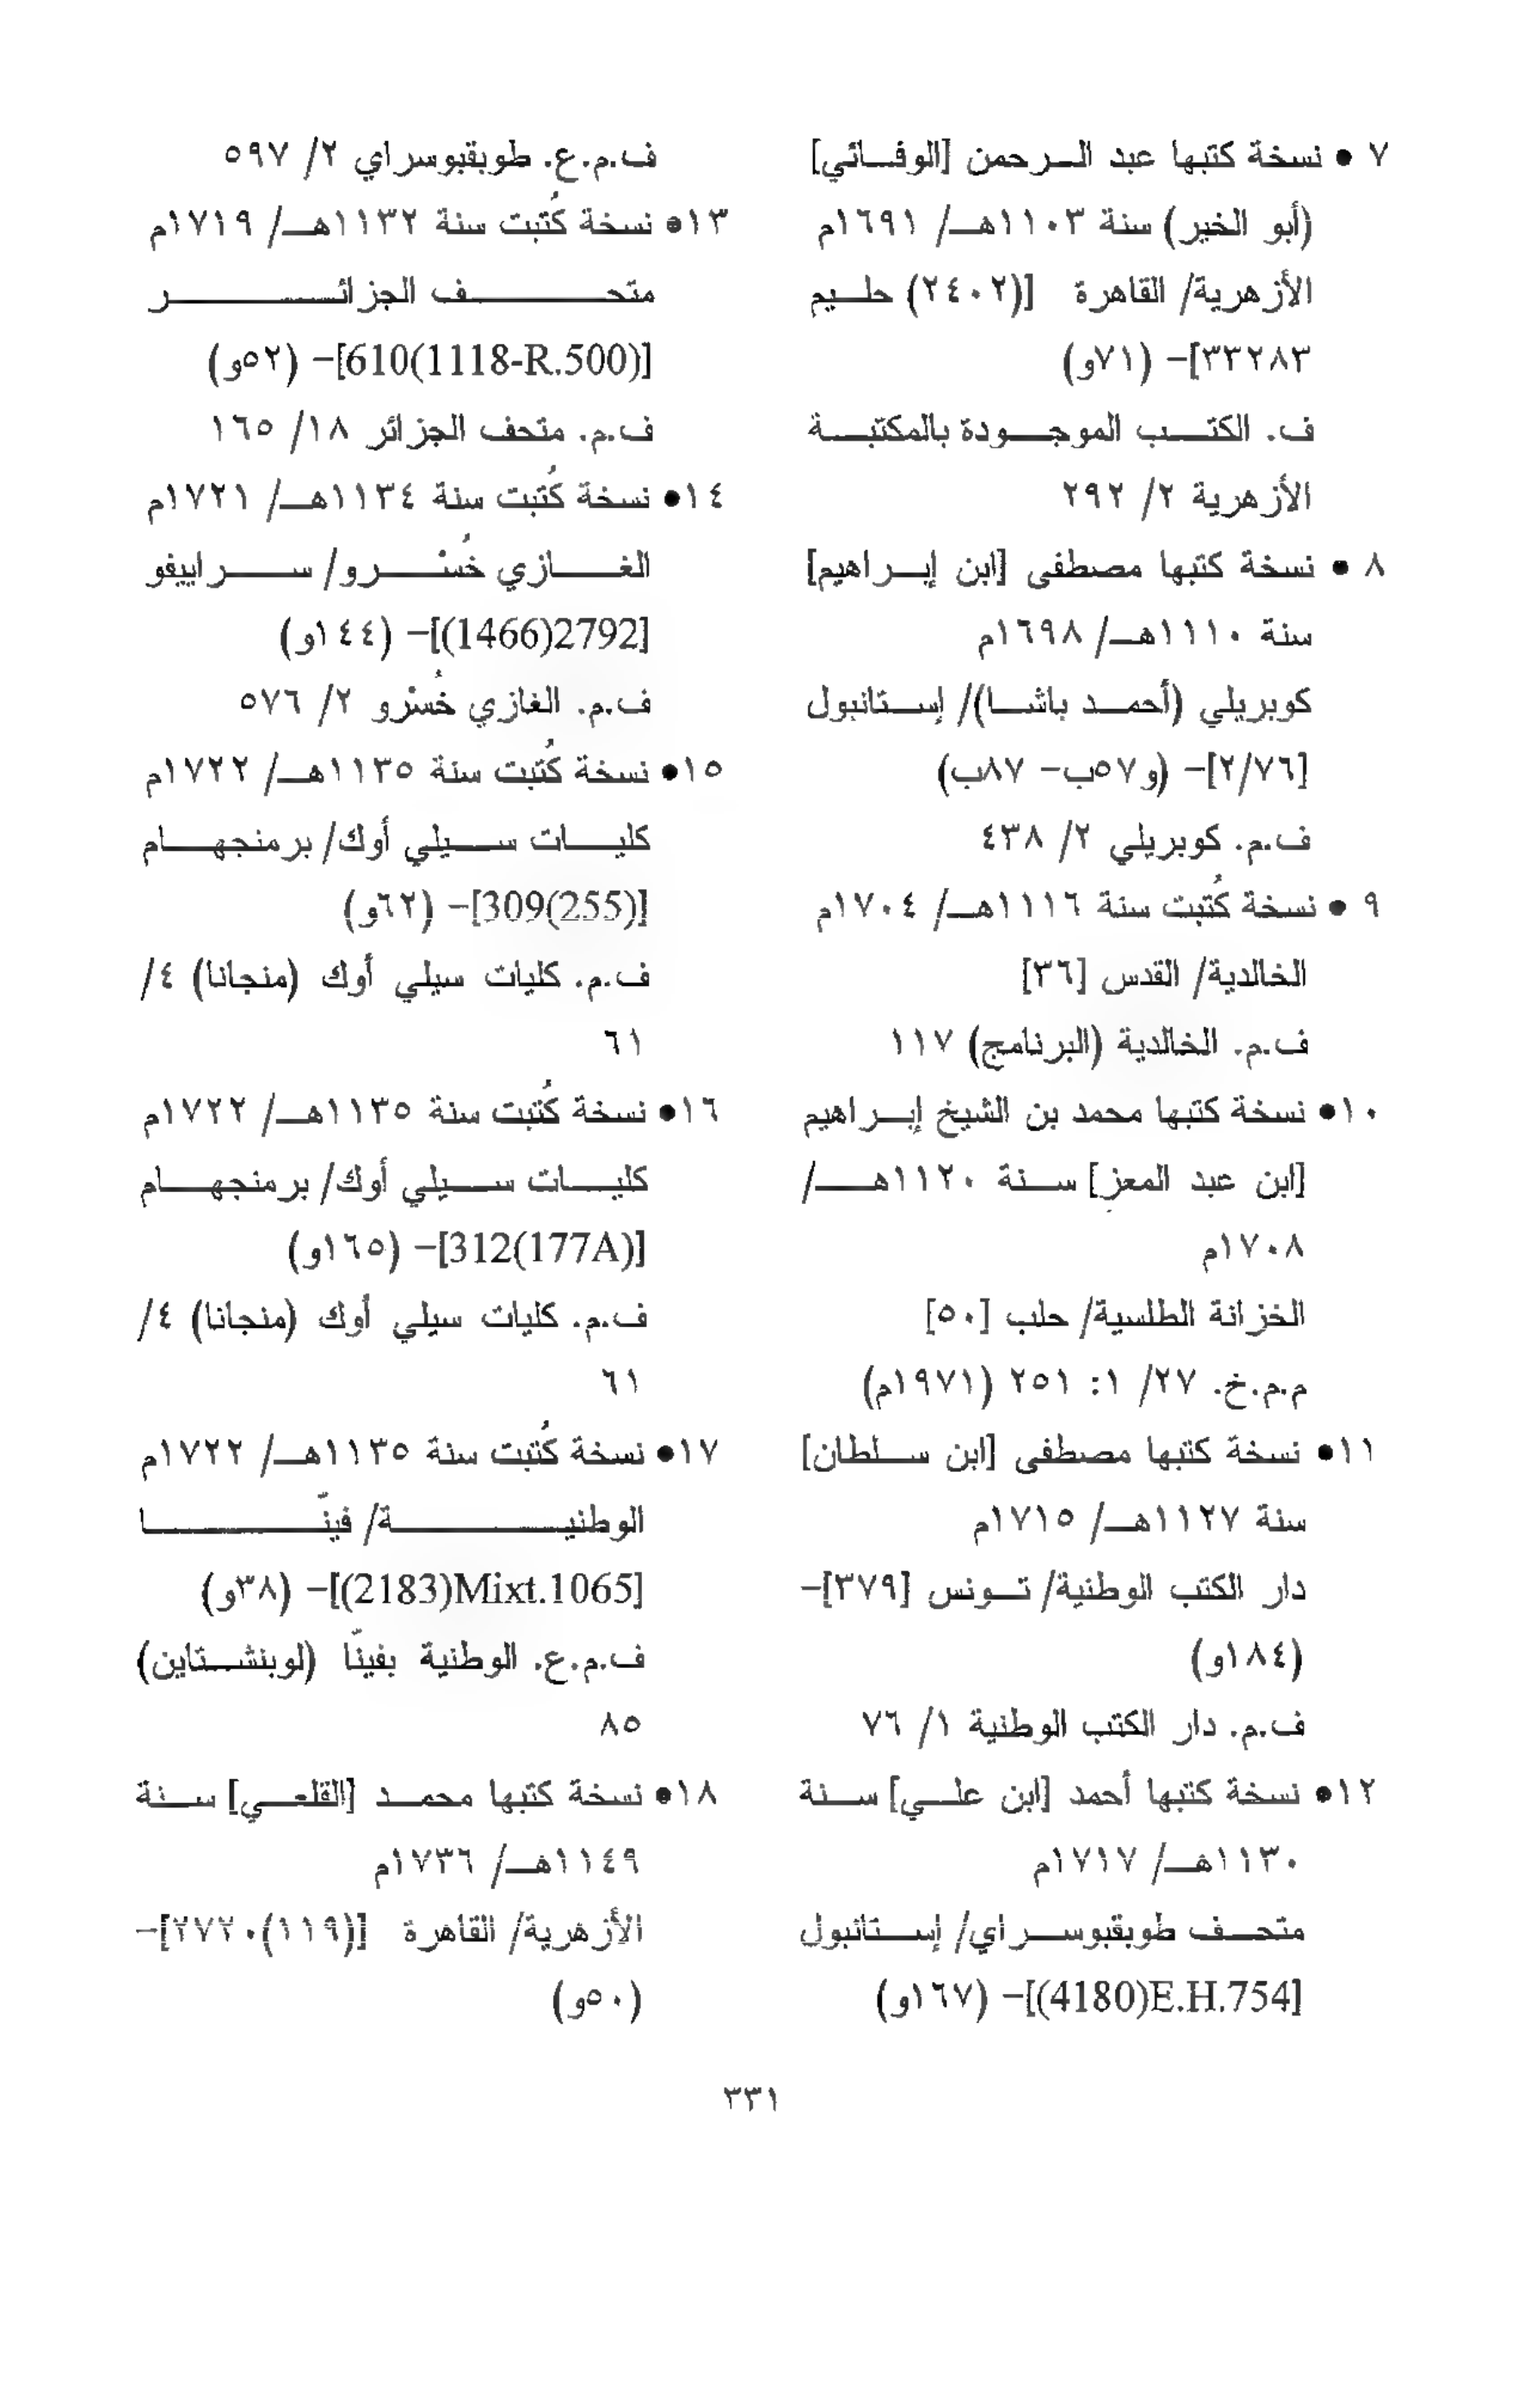 ٧ • نسخة كتبها عبد الرحمن [الوفائي]
(أبو الخير) سنة ١١٠٣هـ/ ١٦٩١م
الأزهرية/ القاهرة [(٢٤٠٢) حليم
٣٣٢٨٣]- (٧١و)
ف. الكتب الموجودة بالمكتبة
الأزهرية ٢/ ٢٩٢
٨ • نسخة كتبها مصطفى [ابن إبراهيم]
سنة ١١١٠هـ/ ١٦٩٨م
كوبريلي (أحمد باشا)/ إستانبول
[٢/٧٦]- (و٥٧ب- ٨٧ب)
ف.م. كوبريلي ٢/ ٤٣٨
٩ • نسخة كُتبت سنة ١١١٦هـ/ ١٧٠٤م
الخالدية/ القدس [٣٦]
ف.م. الخالدية (البرنامج) ١١٧
١٠• نسخة كتبها محمد بن الشيخ إبراهيم
[ابن عبد المعز] سنة ١١٢٠هـ/
١٧٠٨م
الخزانة الطلسية/ حلب [٥٠]
م.م.خ. ٢٧/ ١: ٢٥١ (١٩٧١م)
١١• نسخة كتبها مصطفى [ابن سلطان]
سنة ١١٢٧هـ/ ١٧١٥م
دار الكتب الوطنية/ تونس [٣٧٩]-
(١٨٤و)
ف.م. دار الكتب الوطنية ١/ ٧٦
١٢• نسخة كتبها أحمد [ابن علي] سنة
١١٣٠هـ/ ١٧١٧م
متحف طوبقبوسراي/ إستانبول
[(4180)E.H.754]- (١٦٧و)
ف.م.ع. طوبقبوسراي ٢/ ٥٩٧
١٣• نسخة كُتبت سنة ١١٣٢هـ/ ١٧١٩م
متحف الجزائر
[610(1118-R.500)]- (٥٢و)
ف.م. متحف الجزائر ١٨/ ١٦٥
١٤• نسخة كُتبت سنة ١١٣٤هـ/ ١٧٢١م
الغازي خُسْرو/ سراييفو
[(1466)2792]- (١٤٤و)
ف.م. الغازي خُسْرو ٢/ ٥٧٦
١٥• نسخة كُتبت سنة ١١٣٥هـ/ ١٧٢٢م
كليات سيلي أوك/ برمنجهام
[309(255)]- (٦٢و)
ف.م. كليات سيلي أوك (منجانا) ٤/
٦١
١٦• نسخة كُتبت سنة ١١٣٥هـ/ ١٧٢٢م
كليات سيلي أوك/ برمنجهام
[312(177A)]- (١٦٥و)
ف.م. كليات سيلي أوك (منجانا) ٤/
٦١
١٧• نسخة كُتبت سنة ١١٣٥هـ/ ١٧٢٢م
الوطنية/ فينّا
[(2183)Mixt.1065]- (٣٨و)
ف.م.ع. الوطنية بفينّا (لوبنشتاين)
٨٥
١٨• نسخة كتبها محمد [القلعي] سنة
١١٤٩هـ/ ١٧٣٦م
الأزهرية/ القاهرة [(١١٩)٢٧٢٠]-
(٥٠و)
٣٣١